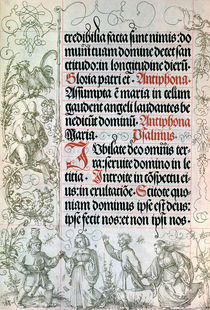 credibilia facta sunt nimis: do
mum tuam domine decet san
ctitudo: in longitudine dierū.
Gloria patri et. Antiphona
Assumpta ē maria in celum
gaudent angeli laudantes be
nedicūt dominū. Antiphona
Maria. Psalmus.
IUbilate deo omnis ter
ra: seruite domino in le
titia. Introite in cōspectu ei⸗
us: in exultatiōe. Scitote quo
niam dominus ipse est deus:
ipse fecit nos: et non ipsi nos.